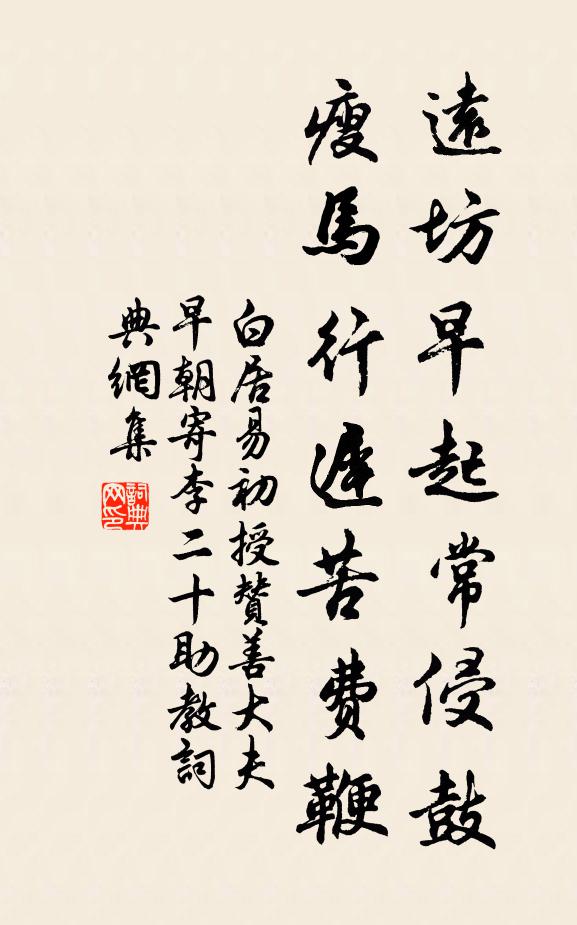 遠坊早起常侵鼓
瘦馬行遲苦費鞭
白居易初授贊善大夫
早朝寄李二十助教詞
典網集
詞典
网印